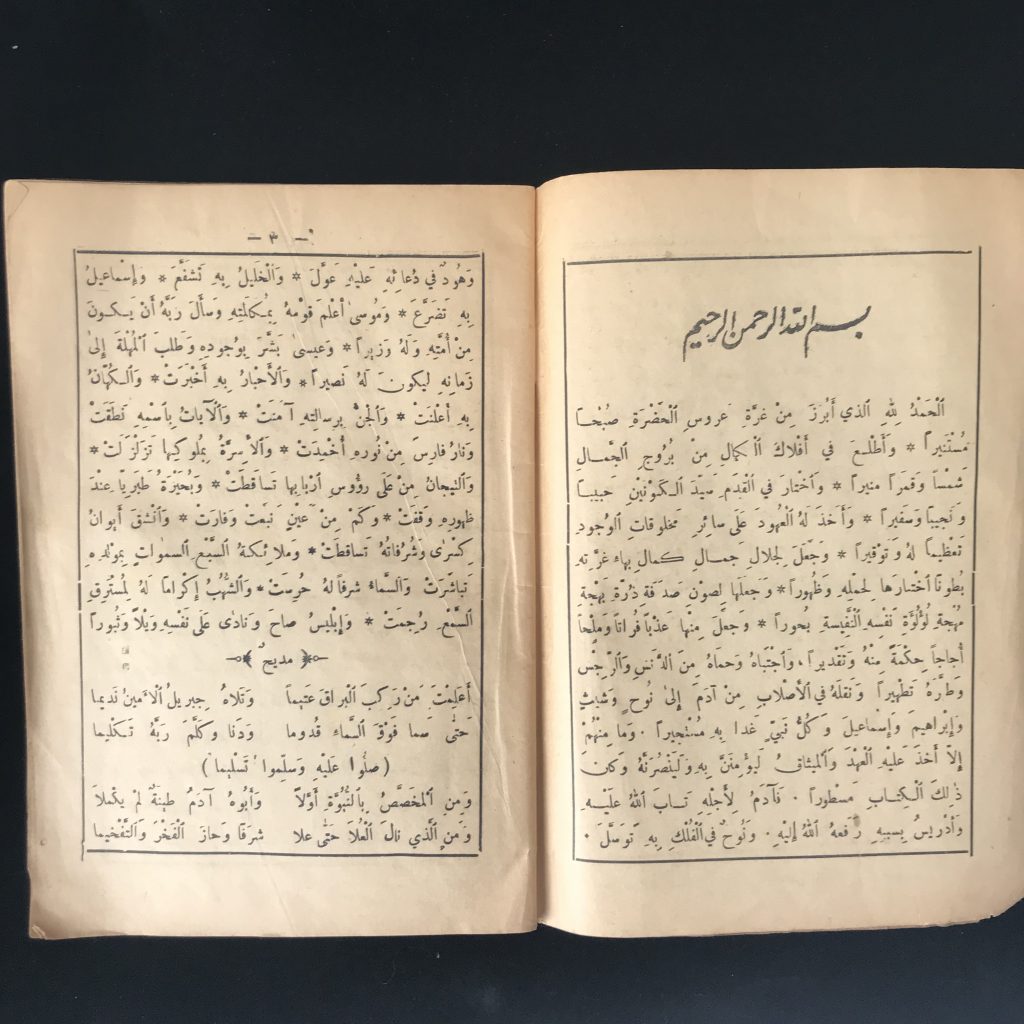 بسم الله الرحمن الرحيم
اَلْحَمْدُ لِلهِ الَّذي أَبْرَزَ مِنْ غُرَّةِ عَروسِ الْحَضْرَةِ صُبْحاً
مُسْتَنيراً * وَأَطْلَعَ في أَفْلاكِ الْكَمالِ مِنْ بُروجِ الْجَمالِ
شَمْساً وَقَمَراً مُنيراً * وَاخْتارَ في القِدَمِ سَيِّدَ الْكَوْنَيْنِ حَبيباً
وَنَجيباً وَسَفيراً * وَأَخَذَ لَهُ الْعُهودَ عَلَى سائِرِ مَخْلوقاتِ الْوُجودِ
تَعْظيماً لَهُ وَتَوْقيراً * وَجَعَلَ لِجَلالِ جَمالِ كَمالِ بَهاءِ غُرَّتِهِ
بُطوناً اخْتارَها لِحَمْلِهِ وَظُهوراً * وَجَعَلَها لِصَوْنِ صَدَفَةِ دُرَّةِ بَهْجَةِ
مُهْجَةِ لُؤْلُؤَةِ نَفْسِهِ النَّفيسَةِ بُحوراً * وَجَعَلَ مِنْها عَذْباً فُراتاً وَمِلْحاً
أُجاجاً حِكْمَةً مِنْهُ وَتَقْديراً . وَاجْتَباهُ وَحَماهُ مِنَ الدَّنَسِ وَالرِّجْسِ
وَطَهَّرَهُ تَطْهيراً . وَنَقَلَهُ في الْأَصْلابِ مِنْ آدَمَ إِلىٰ نُوحٍ وَشيثٍ
وَإِبْراهيمَ وَإِسْماعيلَ . وَكُلُّ نَبِيٍّ غَدا بِهِ مُسْتَجيراً . وَما مِنْهُمْ
إِلاّ أَخَذَ عَلَيْهِ الْعَهْدَ وَالْميثاقَ لَيُؤْمِنَنَّ بِهِ وَلَيَنْصُرَنَّهُ وَكانَ
ذٰلِكَ الْكِتابِ مَسْطوراً . فَآدَمُ لِأَجْلِهِ تابَ اللهُ عَلَيْهِ
وَادْريسُ بِسَبَبِهِ رَفَعَهُ اللهُ إِلَيْهِ . وَنُوحٌ في الْفُلْكِ بِهِ تَوَسَّلَ .
— ٣ —
وَهُودٌ في دُعائِهِ عَلَيْهِ عَوَّلَ * وَالْخَليلُ بِهِ تَشَفَّعَ * وَإِسْماعيلُ
بِهِ تَضَرَّعَ * وَمُوسىٰ أَعْلَمَ قَوْمَهُ بِمُكالَمَتِهِ وَسَأَلَ رَبَّهُ أَنْ يَكونَ
مِنْ أُمَّتِهِ وَلَهُ وَزيراً * وَعيسىٰ بَشَّرَ بِوُجودِهِ وَطَلَبَ الْمُهْلَةَ إِلىٰ
زَمانِهِ لِيَكونَ لَهُ نَصيراً * وَالْأَحْبارُ بِهِ أَخْبَرَتْ * وَالْكُهّانُ
بِهِ أَعْلَنَتْ * وَالْجِنُّ بِرِسالَتِهِ آمَنَتْ * وَالْآياتُ بِاسْمِهِ نَطَقَتْ
وَنارُ فارِسَ مِنْ نُورِهِ أُخْمِدَتْ * وَالْأَسِرَّةُ بِمُلوكِها تَزَلْزَلَتْ *
وَالتيجانُ مِنْ عَلَى رُؤُوسِ أَرْبابِها تَساقَطَتْ * وَبُحَيْرَةُ طَبَرِيّا عِنْدَ
ظُهورِهِ وَقَفَتْ * وَكَمْ مِنْ عَيْنٍ نَبَعَتْ وَفارَتْ * وَانْشَقَّ أَيْوانُ
كِسْرىٰ وَشُرُفاتُهُ تَساقَطَتْ * وَمَلائِكَةُ السَّبْعِ السَّمواتِ بِمَوْلِدِهِ
تَباشَرَتْ وَالسَّماءُ شَرَفاً لَهُ حُرِسَتْ * وَالشُّهُبُ إِكْراماً لَهُ لِمُسْتَرِقِ
السَّمْعِ رُجِمَتْ * وَإِبْليسُ صاحَ وَنادىٰ عَلَى نَفْسِهِ وَيْلاً وَثُبوراً
مديح
أَعَلِمْتَ مَنْ رَكِبَ الْبُراقَ عَتيماً وَتَلاهُ جِبْريلُ الْأَمينُ نَديما
حَتّى سَما فَوْقَ السَّماءِ قُدوما وَدَنا وَكَلَّمَ رَبَّهُ تَكْليما
(صَلُّوا عَلَيْهِ وَسَلِّموا تَسْليما)
وَمَنِ الْمُخَصَّصُ بِالنُّبُوَّةِ أَوَّلاً وَأَبُوهُ آدَمُ طينَةً لَمْ يَكْمُلا
وَمَنِ الَّذي نالَ الْعُلا حَتّى عَلا شَرَفاً وَحازَ الْفَخْرَ وَالتَّفْخيما